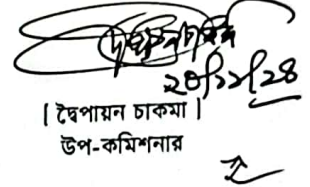 ২০/১১/২৪
[ দ্বৈপায়ন চাকমা ]
উপ-কমিশনার